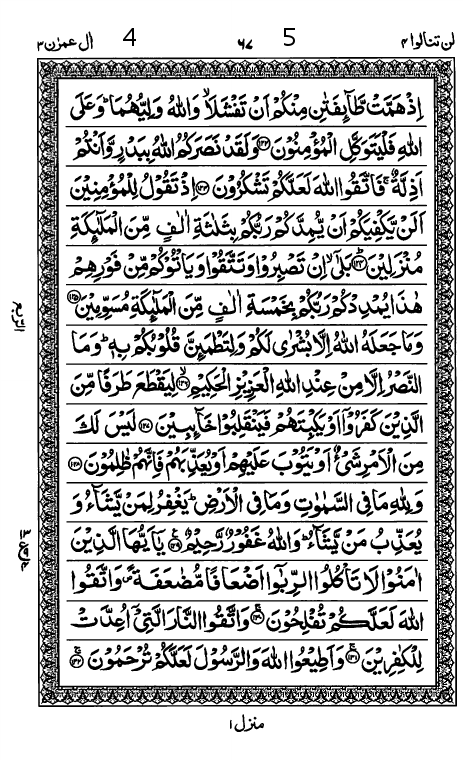 لن تنالوا ٤ 5 ٦٧ 4 اٰل عمرٰن ٣
اِذْ هَمَّتْ طَّآئِفَتٰنِ مِنْكُمْ اَنْ تَفْشَلَا ۙ وَاللّٰهُ وَلِيُّهُمَا ؕ وَعَلَى
اللّٰهِ فَلْيَتَوَكَّلِ الْمُؤْمِنُوْنَ ﴿۱۲۲﴾ وَلَقَدْ نَصَرَكُمُ اللّٰهُ بِبَدْرٍ وَّاَنْتُمْ
اَذِلَّةٌ ۚ فَاتَّقُوا اللّٰهَ لَعَلَّكُمْ تَشْكُرُوْنَ ﴿۱۲۳﴾ اِذْ تَقُوْلُ لِلْمُؤْمِنِيْنَ
اَلَنْ يَّكْفِيَكُمْ اَنْ يُّمِدَّكُمْ رَبُّكُمْ بِثَلٰثَةِ اٰلٰفٍ مِّنَ الْمَلٰٓئِكَةِ
مُنْزَلِيْنَ ﴿۱۲۴﴾ بَلٰٓى ۙ اِنْ تَصْبِرُوْا وَتَتَّقُوْا وَيَاْتُوْكُمْ مِّنْ فَوْرِهِمْ
هٰذَا يُمْدِدْكُمْ رَبُّكُمْ بِخَمْسَةِ اٰلٰفٍ مِّنَ الْمَلٰٓئِكَةِ مُسَوِّمِيْنَ ﴿۱۲۵﴾
وَمَا جَعَلَهُ اللّٰهُ اِلَّا بُشْرٰى لَكُمْ وَلِتَطْمَئِنَّ قُلُوْبُكُمْ بِهٖ ؕ وَمَا
النَّصْرُ اِلَّا مِنْ عِنْدِ اللّٰهِ الْعَزِيْزِ الْحَكِيْمِ ﴿۱۲۶﴾ لِيَقْطَعَ طَرَفًا مِّنَ
الَّذِيْنَ كَفَرُوْٓا اَوْ يَكْبِتَهُمْ فَيَنْقَلِبُوْا خَآئِبِيْنَ ﴿۱۲۷﴾ لَيْسَ لَكَ
مِنَ الْاَمْرِ شَيْءٌ اَوْ يَتُوْبَ عَلَيْهِمْ اَوْ يُعَذِّبَهُمْ فَاِنَّهُمْ ظٰلِمُوْنَ ﴿۱۲۸﴾
وَلِلّٰهِ مَا فِى السَّمٰوٰتِ وَمَا فِى الْاَرْضِ ؕ يَغْفِرُ لِمَنْ يَّشَآءُ وَ
يُعَذِّبُ مَنْ يَّشَآءُ ؕ وَاللّٰهُ غَفُوْرٌ رَّحِيْمٌ ﴿۱۲۹﴾ يٰٓاَيُّهَا الَّذِيْنَ
اٰمَنُوْا لَا تَاْكُلُوا الرِّبٰٓوا اَضْعَافًا مُّضٰعَفَةً ۪ وَاتَّقُوا
اللّٰهَ لَعَلَّكُمْ تُفْلِحُوْنَ ﴿۱۳۰﴾ وَاتَّقُوا النَّارَ الَّتِىْٓ اُعِدَّتْ
لِلْكٰفِرِيْنَ ﴿۱۳۱﴾ وَاَطِيْعُوا اللّٰهَ وَالرَّسُوْلَ لَعَلَّكُمْ تُرْحَمُوْنَ ﴿۱۳۲﴾
الربع
منزل ١